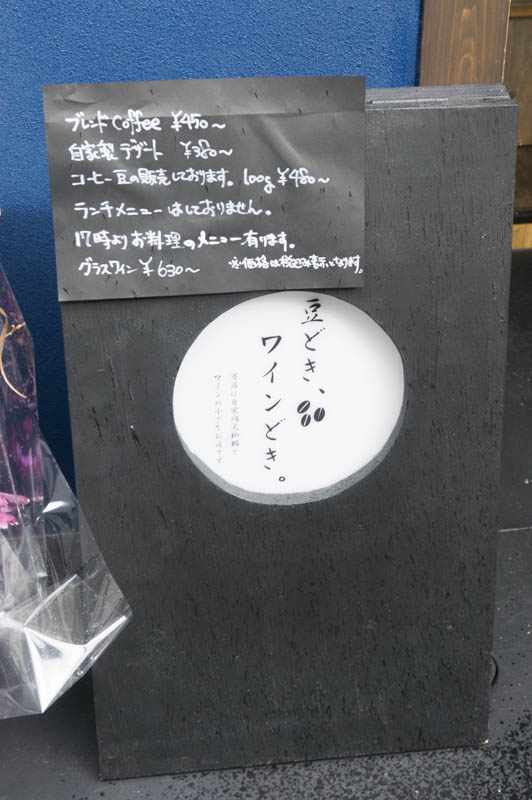 ブレンドCoffee ¥450〜
自家製デザート ¥380〜
コーヒー豆の販売しております。100g ¥480〜
ランチメニューはしておりません。
17時よりお料理のメニュー有ります。
グラスワイン ¥630〜
※価格は税込み表示となります。
豆どき、
ワインどき。
当店は自家焙煎珈琲と
ワインの小さなお店です